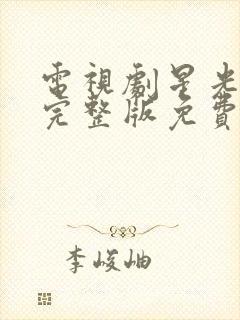 電視劇星光
完整版免費
李峻岫